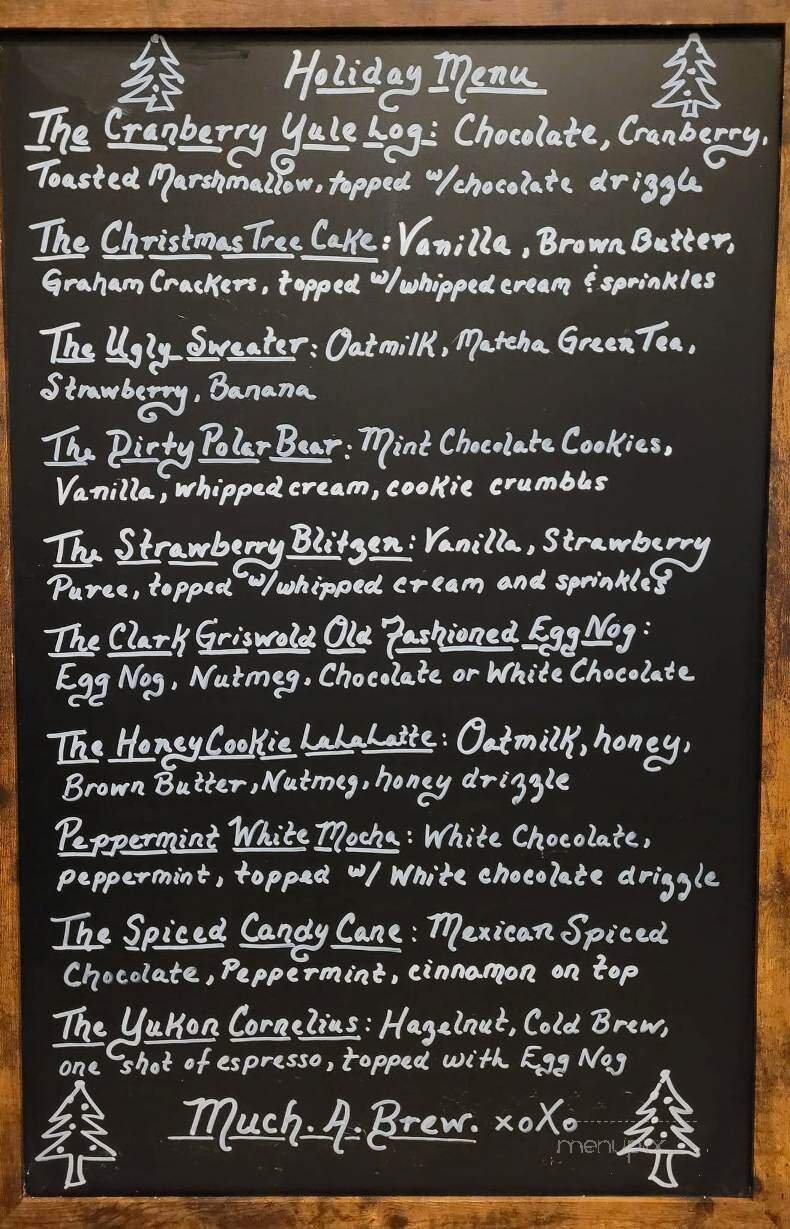 Holiday Menu
The Cranberry Yule Log: Chocolate, Cranberry,
Toasted Marshmallow, topped w/chocolate drizzle
The Christmas Tree Cake: Vanilla, Brown Butter,
Graham Crackers, topped w/whipped cream & sprinkles
The Ugly Sweater: Oatmilk, Matcha Green Tea,
Strawberry, Banana
The Dirty Polar Bear: Mint Chocolate Cookies,
Vanilla, whipped cream, cookie crumbles
The Strawberry Blitzen: Vanilla, Strawberry
Puree, topped w/whipped cream and sprinkles
The Clark Griswold Old Fashioned Egg Nog:
Egg Nog, Nutmeg, Chocolate or White Chocolate
The Honey Cookie LaLaLatte: Oatmilk, honey,
Brown Butter, Nutmeg, honey drizzle
Peppermint White Mocha: White Chocolate,
peppermint, topped w/ White chocolate drizzle
The Spiced Candy Cane: Mexican Spiced
Chocolate, Peppermint, cinnamon on top
The Yukon Cornelius: Hazelnut, Cold Brew,
one shot of espresso, topped with Egg Nog
Much. A. Brew. xoXo
menupix